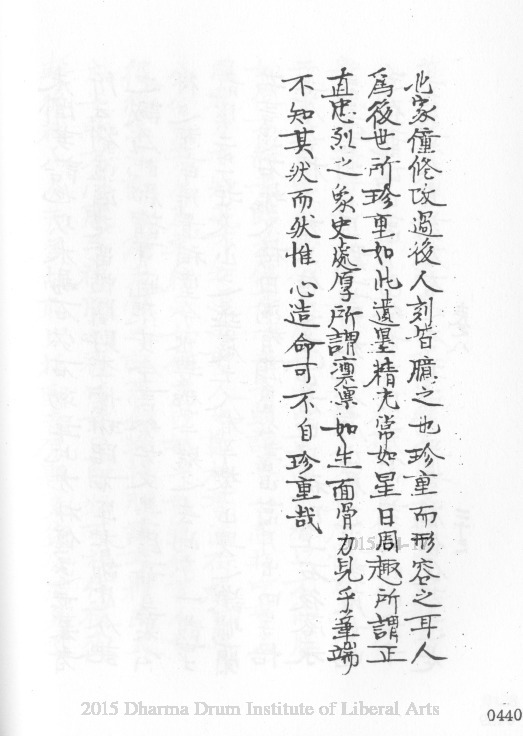 此家僮修改過後人刻皆臆之也珍重而形容之耳人
爲後世所珍重如此遺墨精光常如星日周趣所謂正
直忠烈之象史處厚所謂凛凛如生面骨力見乎筆端
不知其然而然惟心造命可不自珍重哉
2015 Dharma Drum Institute of Liberal Arts
0440